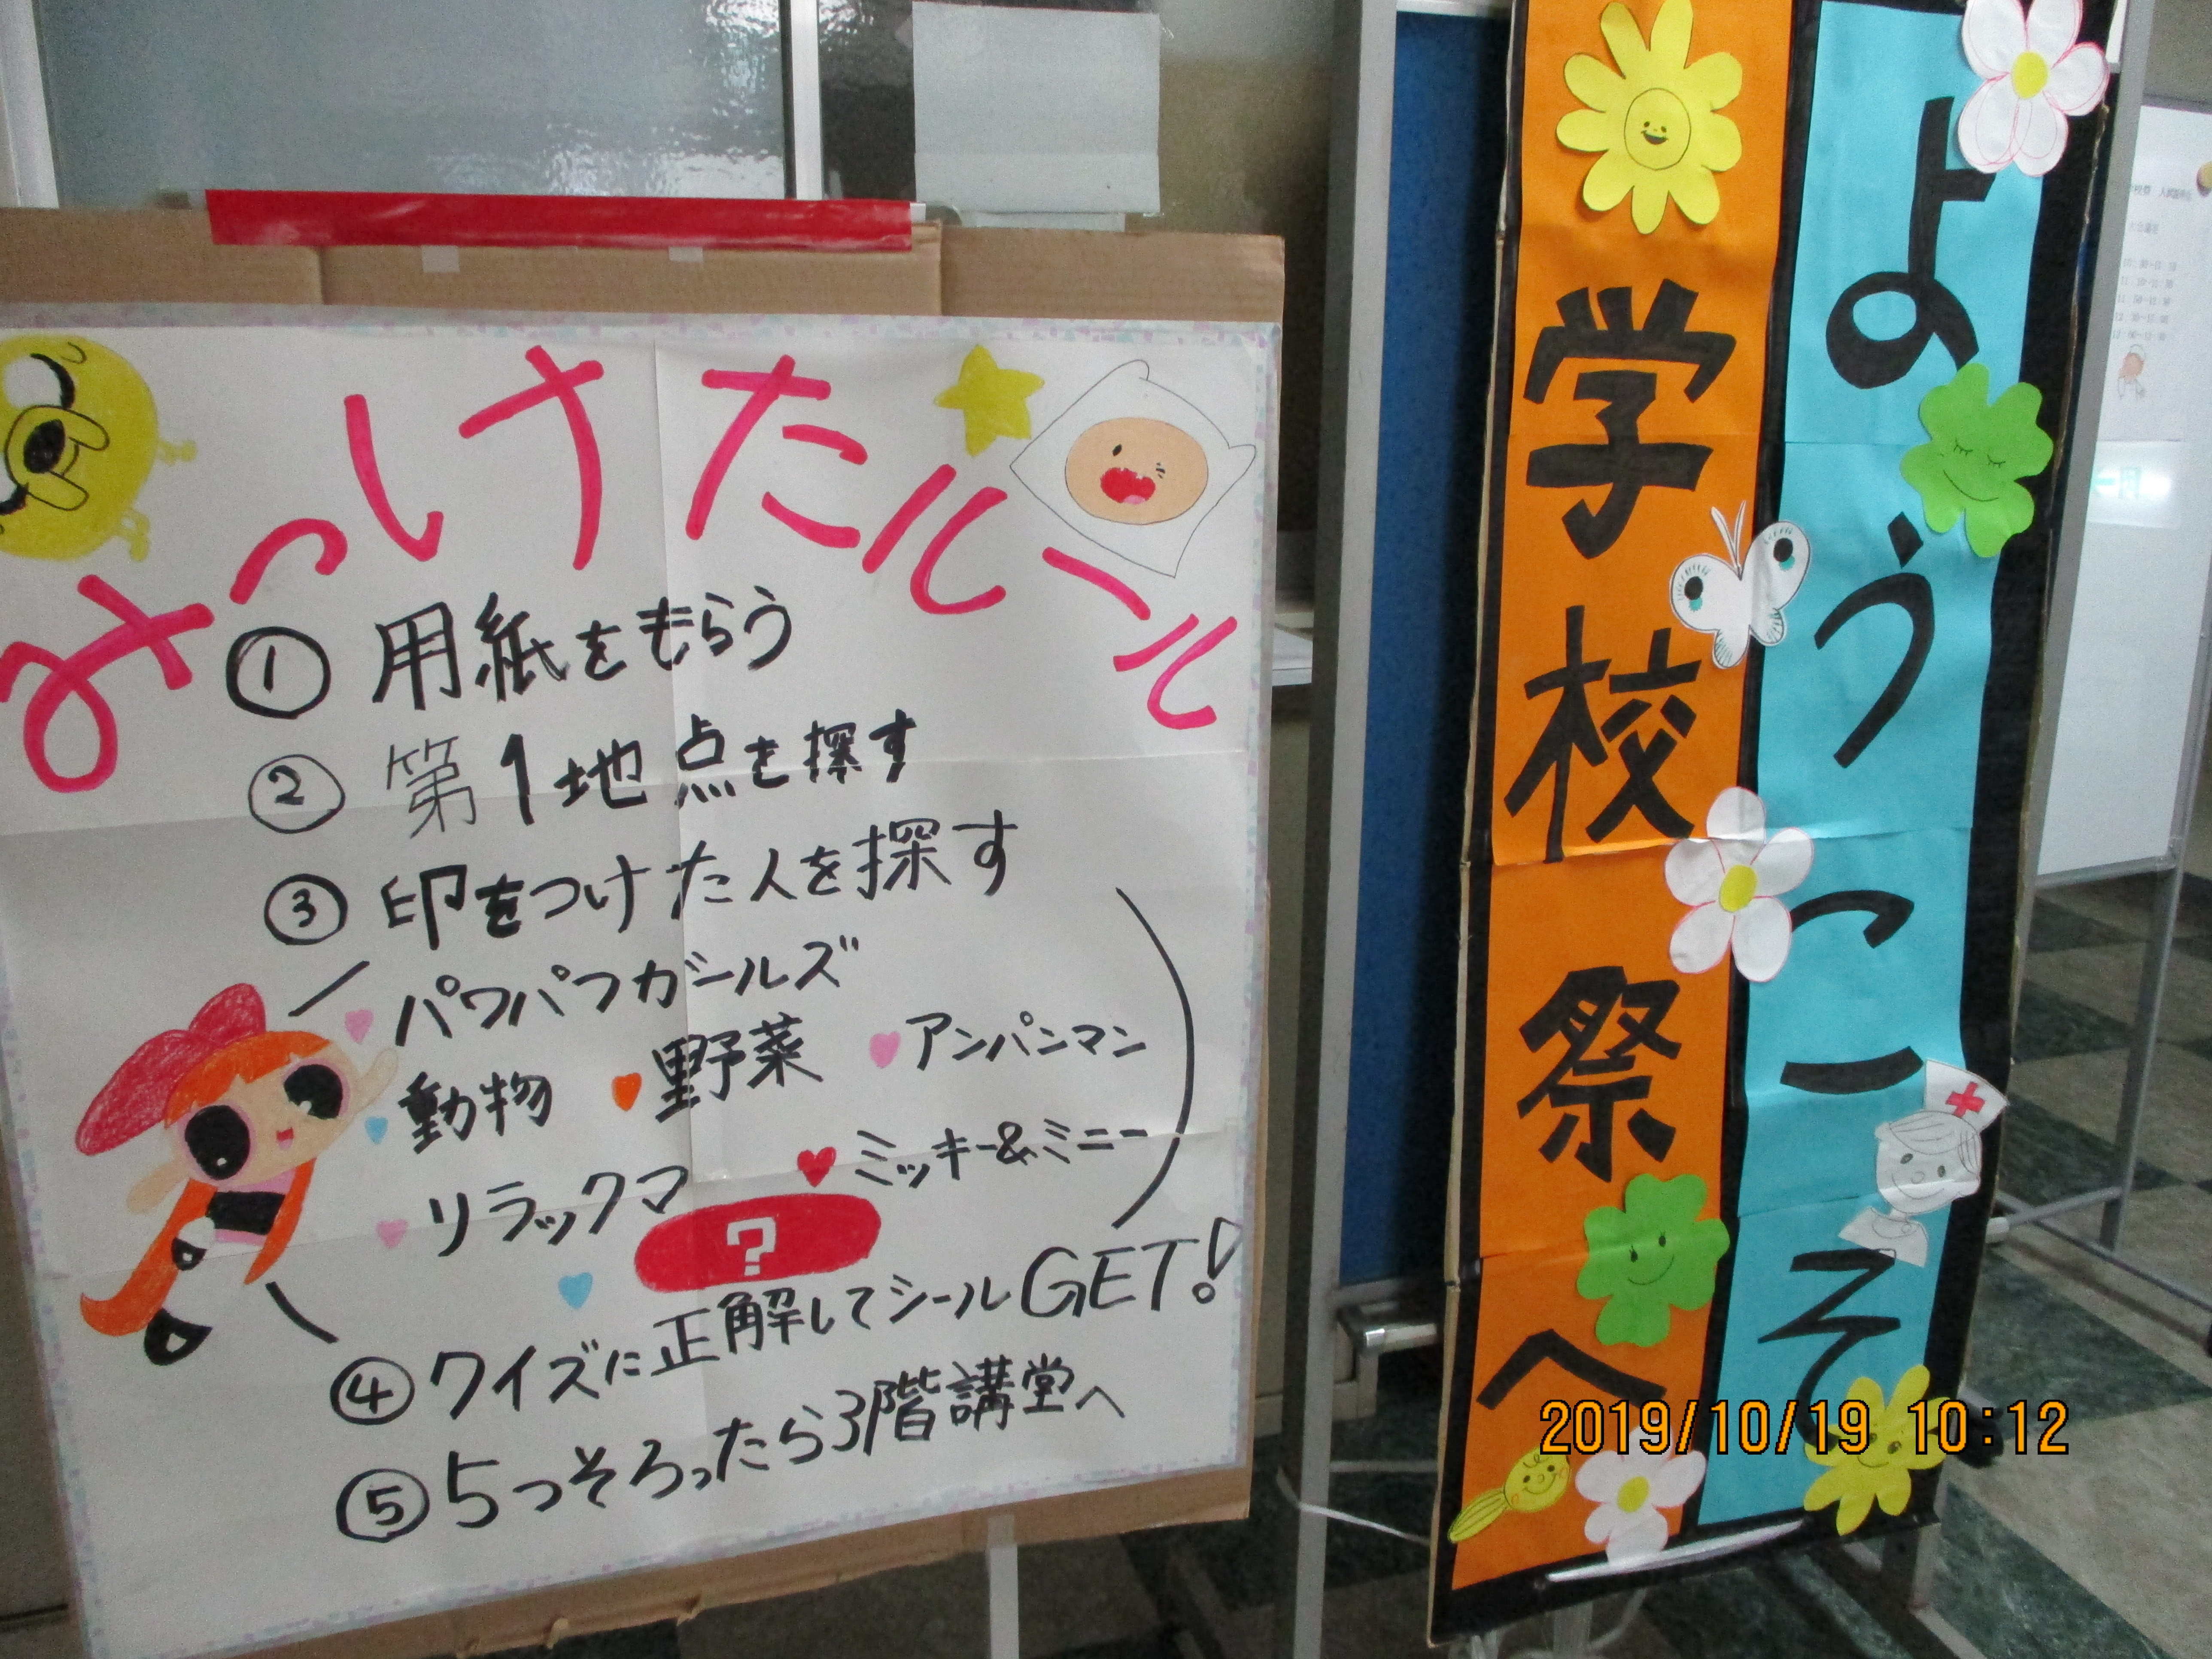 みっけたルール
① 用紙をもらう
② 第1地点を探す
③ 印をつけた人を探す
パワパフガールズ
動物 野菜 アンパンマン
リラックマ ミッキー&ミニー
?
④ クイズに正解してシールGET!
⑤ 5つそろったら3階講堂へ
ようこそ
学校祭へ
2019/10/19 10:12